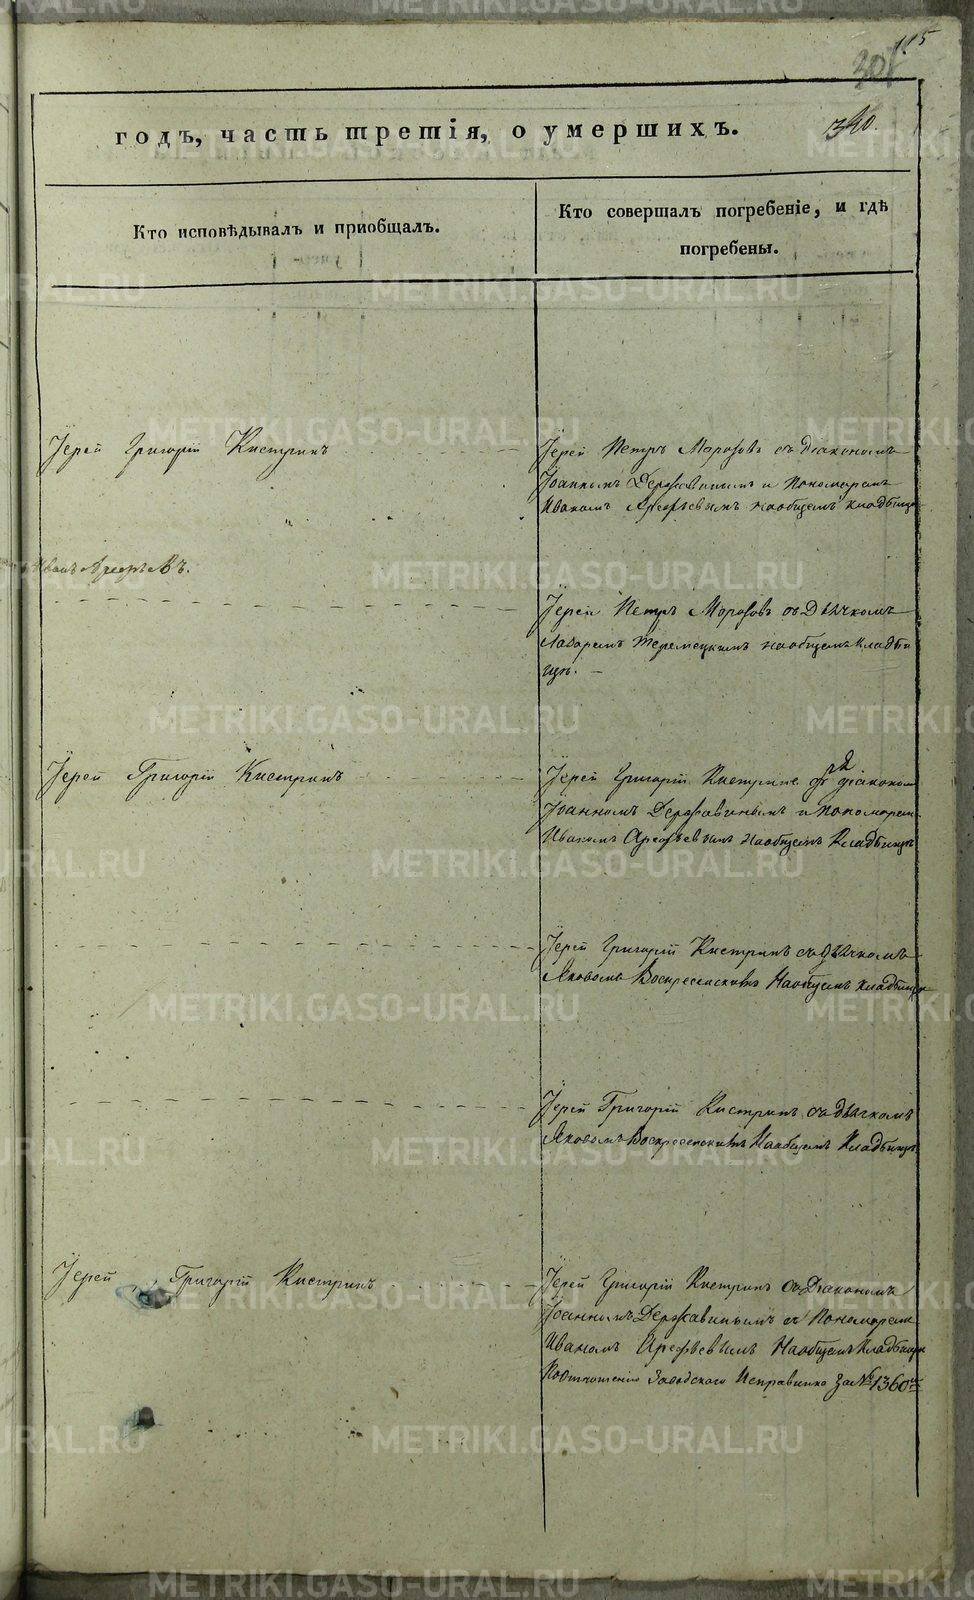 115
годъ, часть третія, о умершихъ.
340.
Кто исповѣдывалъ и приобщалъ.
Кто совершалъ погребеніе, и гдѣ
погребены.
Іерей Григорій Кистринъ
Іерей Петръ Морозовъ съ Діакономъ
Іоанномъ Державинымъ и Пономаремъ
Иваномъ Арефьевымъ на общемъ кладбище
Иванъ Арефьевъ.
Іерей Петръ Морозовъ съ Дьячкомъ
Лазаремъ на общемъ кладби
ще. —
Іерей Григорій Кистринъ
Іерей Григорій Кистринъ діакономъ
Іоанномъ Державинымъ и пономарем
Иваномъ Арефьевымъ на общемъ Кладбище
Іерей Григорій Кистринъ съ дьячкомъ
Яковомъ Воскресенскимъ На общемъ кладбище
Іерей Григорій Кистринъ съ дьячкомъ
Яковомъ Воскресенскимъ На общемъ Кладбище
Іерей Григорій Кистринъ
Іерей Григорій Кистринъ съ Діакономъ
Іоанномъ Державинымъ и Пономарем
Иваномъ Арефьевымъ На общемъ Кладбище
По отношению Заводского Исправника За № 1360
METRIKI.GASO-URAL.RU